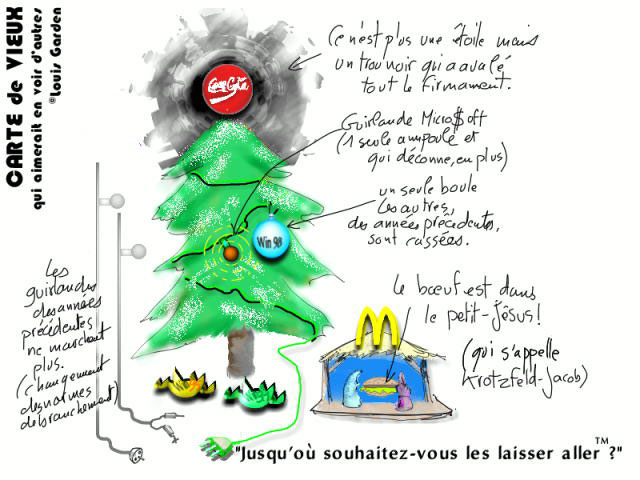 CARTE de VIEUX
qui aimerait en voir d'autres
©Louis Garden
Ce n'est plus une étoile mais
un trou noir qui a avalé
tout le firmament.
Guirlande Micro$oft
(1 seule ampoule et
qui déconne, en plus)
un seule boule
les autres,
des années précédentes,
sont cassées.
Win 98
Les
guirlandes
des années
précédentes
ne marchent
plus.
(changement
des normes
de branchement)
le bœuf est dans
le petit-Jésus!
(qui s'appelle
Krotzfeld-Jacob)
M
"Jusqu'où souhaitez-vous les laisser aller™?"